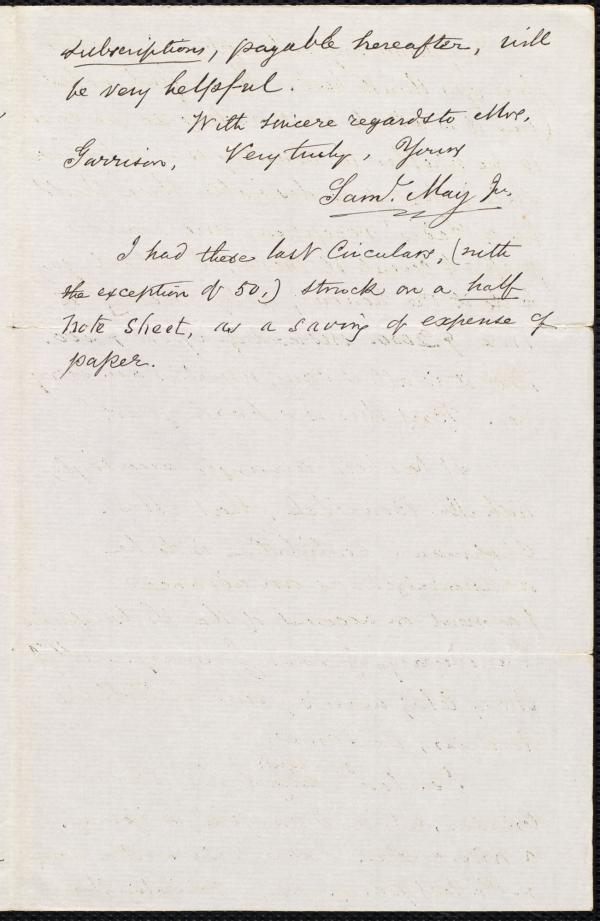 subscriptions, payable hereafter, will
be very helpful.
With sincere regards to Mrs.
Garrison, Very truly, Yours
Saml. May Jr.
I had these last Circulars, (with
the exception of 50,) struck on a half
note sheet, as a saving of expense of
paper.